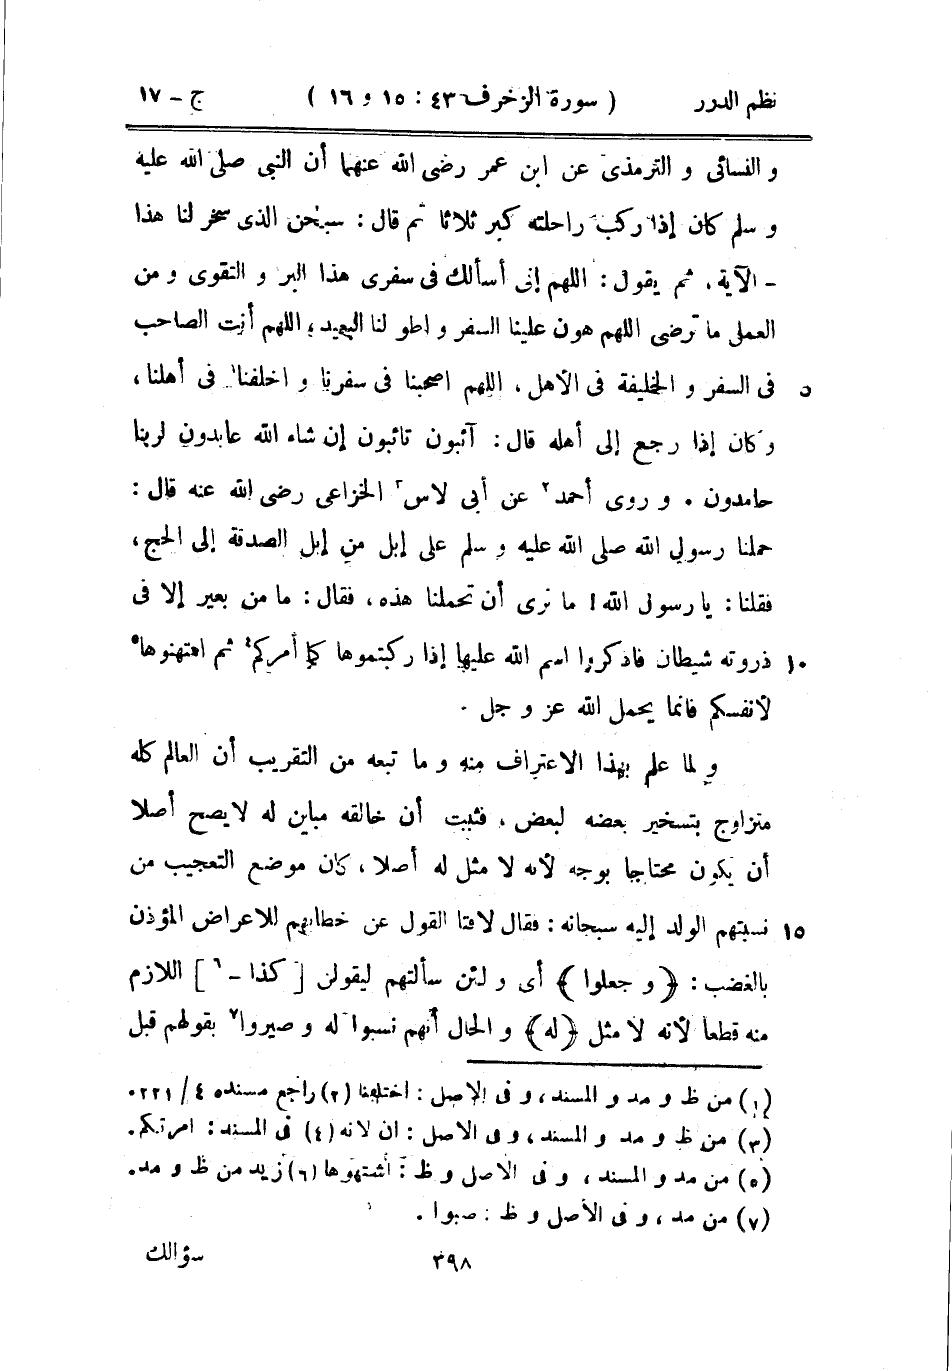 نظم الدرر ( سورة الزخرف ٤٣ : ١٥ و ١٦ ) ج - ١٧
و النسائى و الترمذى عن ابن عمر رضى الله عنهما أن النبي صلى الله عليه
و سلم كان إذا ركب راحلته كبر ثلاثا ثم قال : سبحٰن الذى سخر لنا هذا
- الآية ، ثم يقول : اللهم إنى أسألك فى سفرى هذا البر و التقوى و من
العمل ما ترضى اللهم هون علينا السفر و اطو لنا البعيد ؛ اللهم أنت الصاحب
٥ فى السفر و الخليفة فى الأهل ، اللهم اصحبنا فى سفرنا و اخلفنا١ فى أهلنا ،
و كان إذا رجع إلى أهله قال : آئبون تائبون إن شاء الله عابدون لربنا
حامدون . و روى أحمد٢ عن أبى لاس٣ الخزاعى رضى الله عنه قال :
حملنا رسول الله صلى الله عليه و سلم على إبل من إبل الصدقة إلى الحج ،
فقلنا : يا رسول الله ! ما نرى أن تحملنا هذه ، فقال : ما من بعير إلا فى
١٠ ذروته شيطان فاذكروا اسم الله عليها إذا ركبتموها كما أمركم٤ ثم امتهنوها٥
لأنفسكم فانما يحمل الله عز و جل .
و لما علم بهذا الاعتراف منه و ما تبعه من التقريب أن العالم كله
متزاوج بتسخير بعضه لبعض ، فثبت أن خالقه مباين له لا يصح أصلا
أن يكون محتاجا بوجه لأنه لا مثل له أصلا ، كان موضع التعجيب من
١٥ نسبتهم الولد إليه سبحانه : فقال لافتا القول عن خطابهم للاعراض المؤذن
بالغضب : ﴿ و جعلوا ﴾ أى و لئن سألتهم ليقولن [ كذا - ٦ ] اللازم
منه قطعا لأنه لا مثل ﴿ له ﴾ و الحال أنهم نسبوا له و صيروا٧ بقولهم قبل
(١) من ظ و مد و المسند ، و فى الاصل : اختلفنا (٢) راجع مسنده ٤ / ٢٢١ .
(٣) من ظ و مد و المسند ، و فى الاصل : ان لانه (٤) فى المسند : امرتكم .
(٥) من مد و المسند ، و فى الاصل و ظ : أشتهوها (٦) زيد من ظ و مد .
(٧) من مد ، و فى الأصل و ظ : صبوا .
٣٩٨ سؤالك